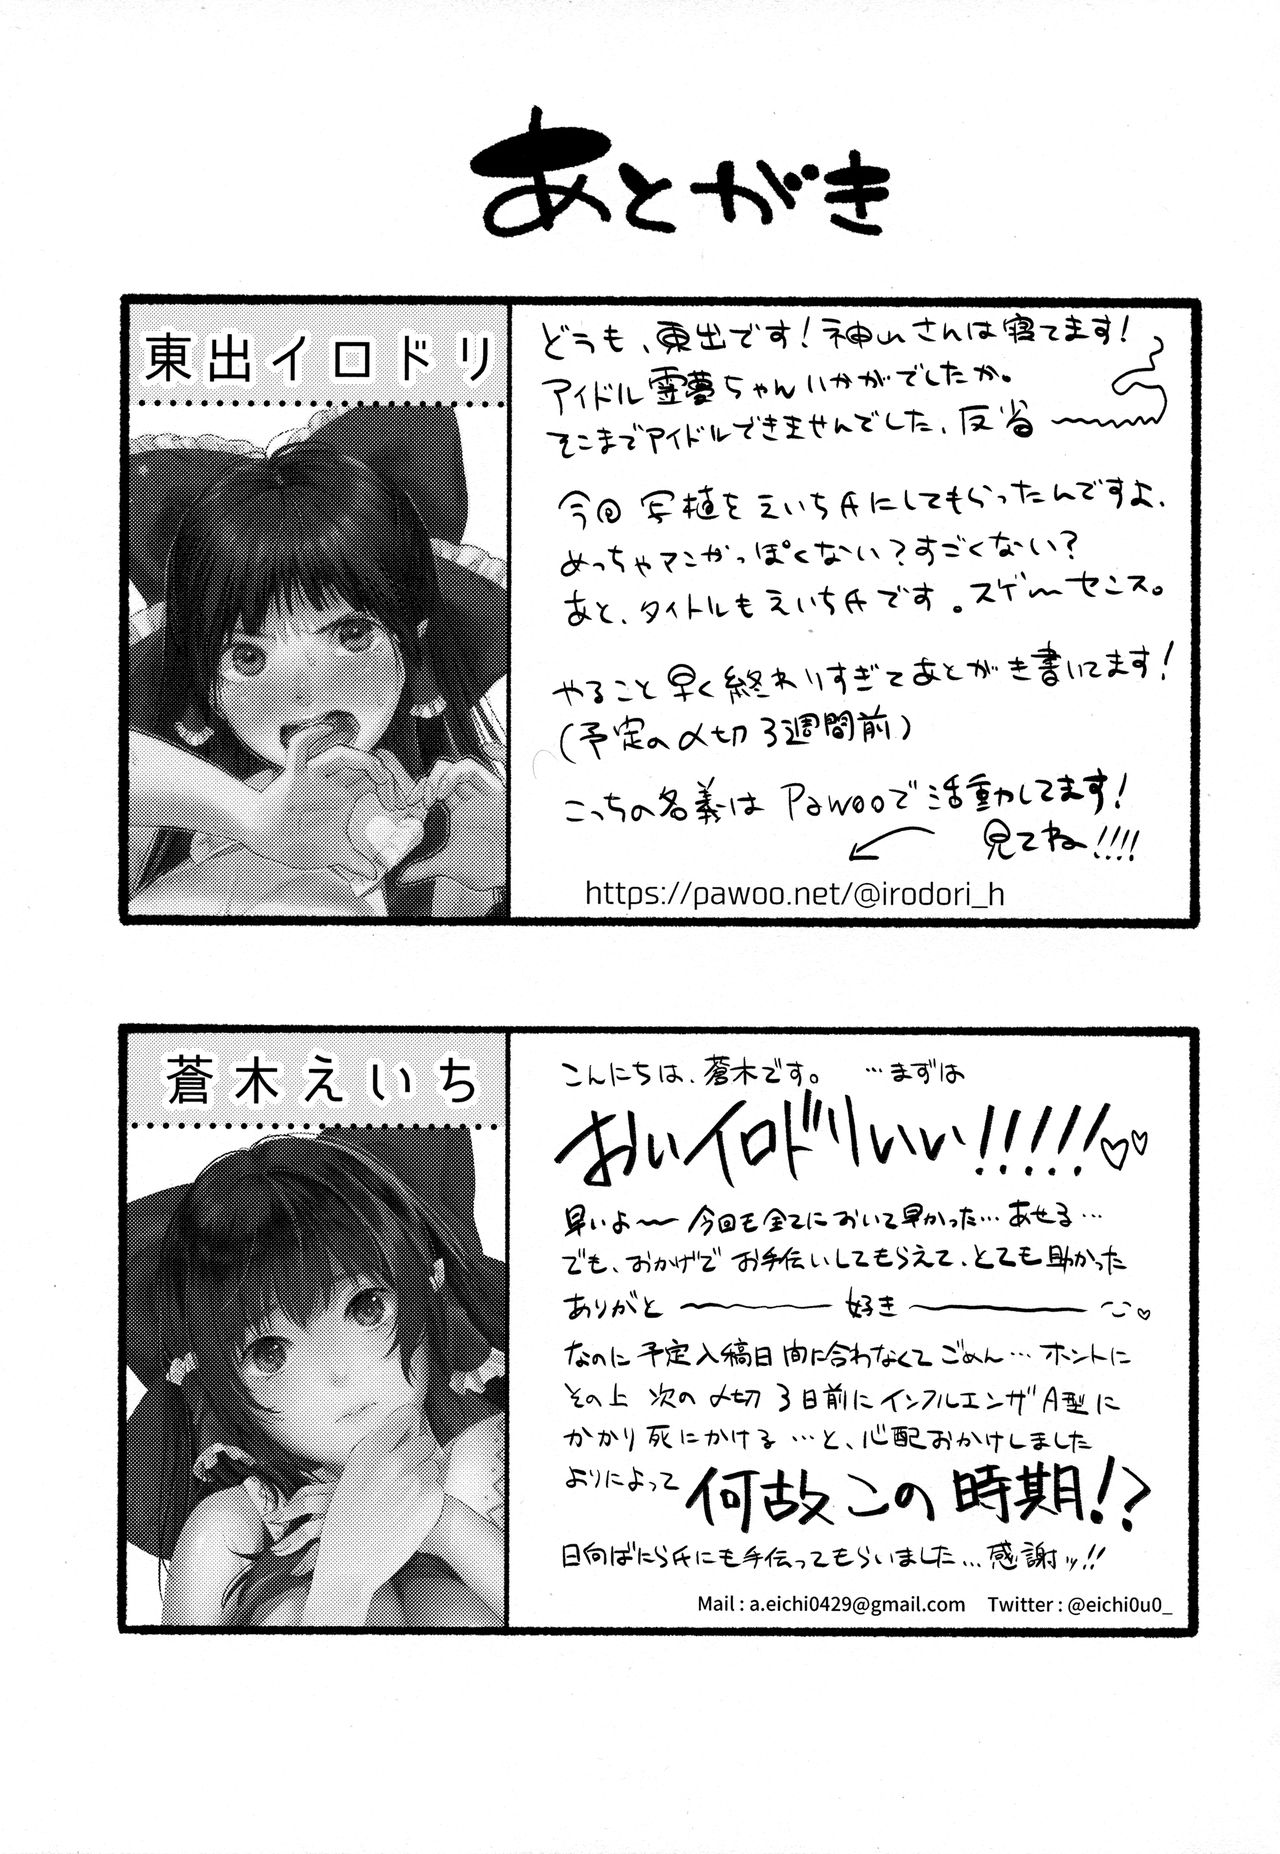 あとがき
東出イロドリ
どうも、東出です！神山さんは寝てます！
アイドル霊夢ちゃんいかがでしたか。
そこまでアイドルできませんでした、反省
今回写植をえいち氏にしてもらったんですよ、
めっちゃマンガっぽくない？すごくない？
あと、タイトルもえいち氏です。スゲ〜センス。
やること早く終わりすぎてあとがき書いてます！
(予定の〆切3週間前)
こっちの名義はPawooで活動してます！
見てね!!!!
https://pawoo.net/@irodori_h
蒼木えいち
こんにちは、蒼木です。 …まずは
おいイロドリいい!!!!!♡♡
早いよ〜 今回も全てにおいて早かった…あせる…
でも、おかげでお手伝いしてもらえて、とても助かった
ありがと〜好き〜♡
なのに予定入稿日間に合わなくてごめん…ホントに
その上 次の〆切3日前にインフルエンザA型に
かかり死にかける…と、心配おかけしました
よりによって 何故この時期!?
日向ばにら氏にも手伝ってもらいました…感謝ッ!!
Mail : a.eichi0429@gmail.com Twitter : @eichi0u0_